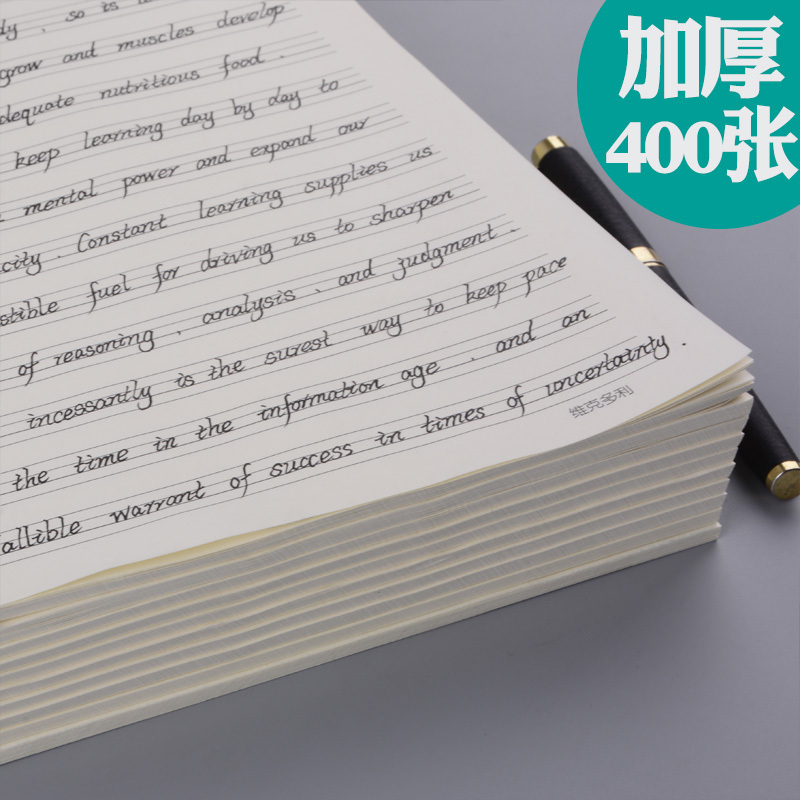 so is
grow and muscles develop
adequate nutritious food .
keep learning day by day to
mental power and expand our
city . Constant learning supplies us
stible fuel for driving us to sharpen
of reasoning , analysis , and judgment .
incessantly is the surest way to keep pace
the time in the information age , and an
allible warrant of success in times of uncertainty .
维克多利
加厚
400张